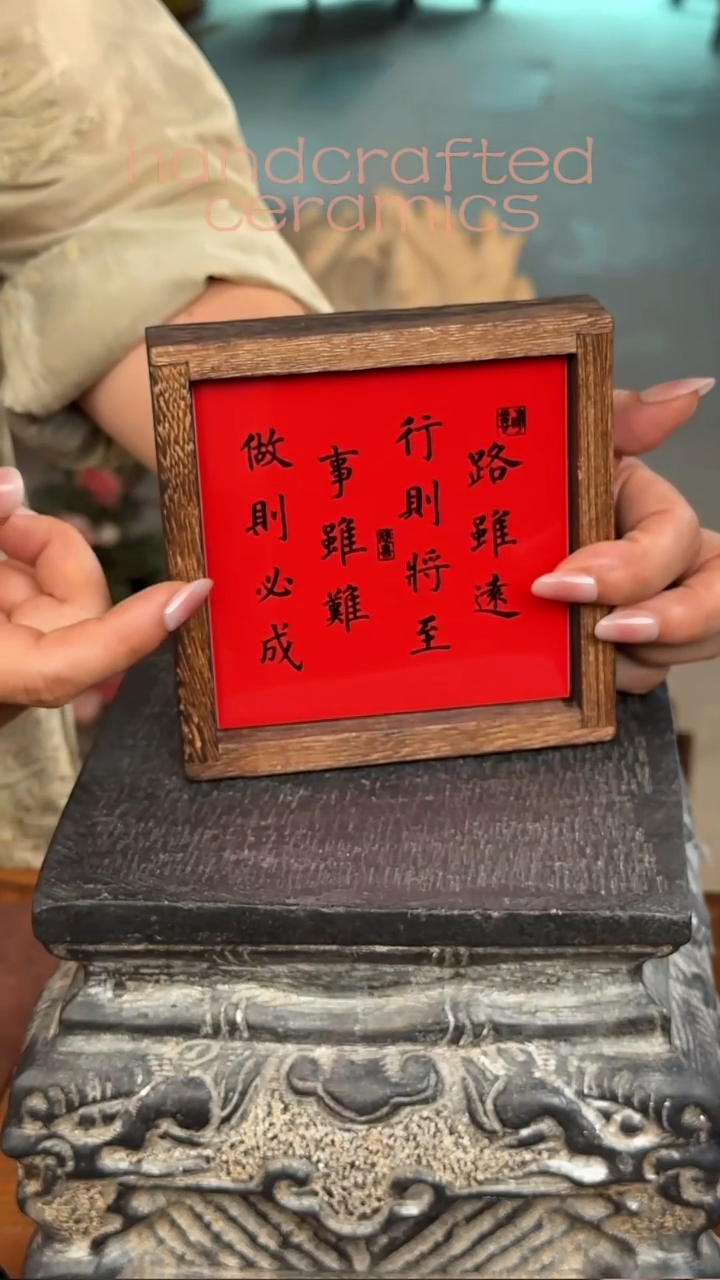 handcrafted
ceramics
路雖遠
行則將至
事雖難
做則必成